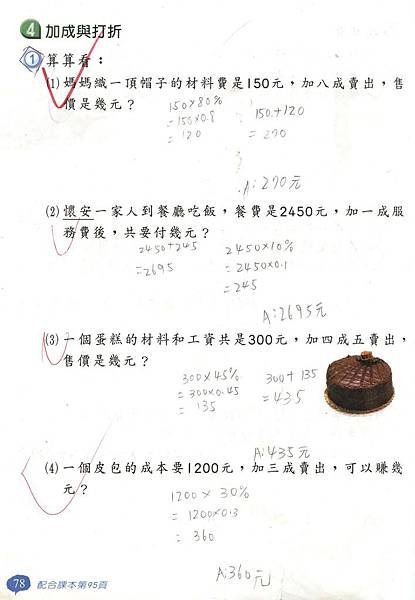 4 加成與打折
1 算算看：
(1) 媽媽織一頂帽子的材料費是150元，加八成賣出，售
價是幾元？
150×80%
=150×0.8
=120
150+120
=270
A:270元
(2) 懷安一家人到餐廳吃飯，餐費是2450元，加一成服
務費後，共要付幾元？
2450+245
=2695
2450×10%
=2450×0.1
=245
A:2695元
(3) 一個蛋糕的材料和工資共是300元，加四成五賣出，
售價是幾元？
300×45%
=300×0.45
=135
300+135
=435
A:435元
(4) 一個皮包的成本要1200元，加三成賣出，可以賺幾
元？
1200×30%
=1200×0.3
=360
A:360元
78 配合課本第95頁